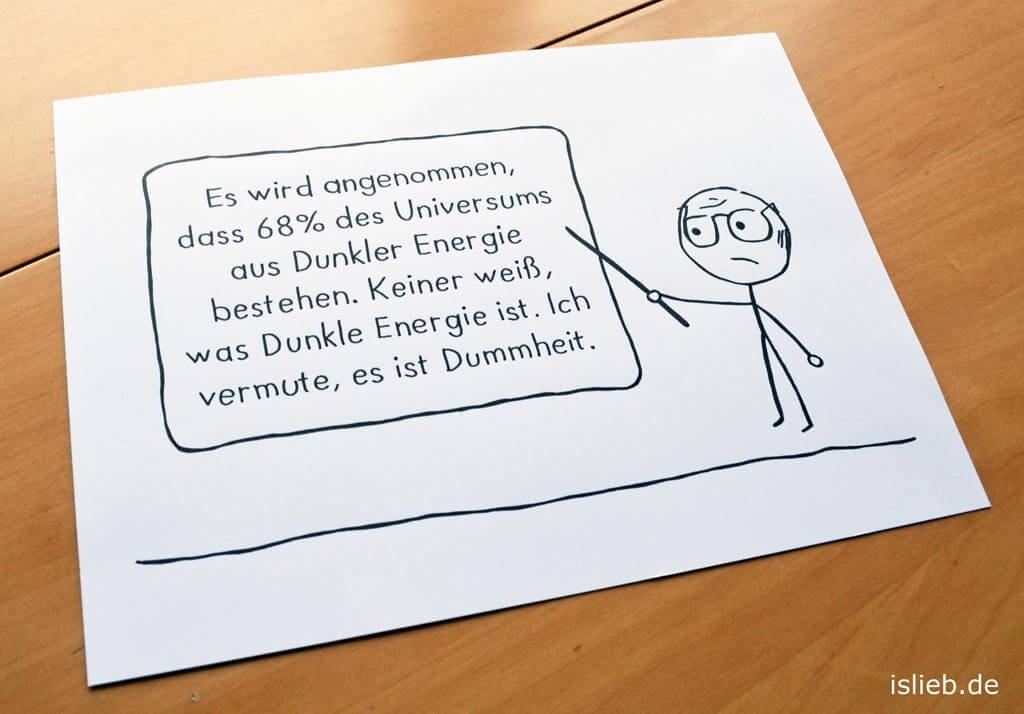 Es wird angenommen,
dass 68% des Universums
aus Dunkler Energie
bestehen. Keiner weiß,
was Dunkle Energie ist. Ich
vermute, es ist Dummheit.
islieb.de